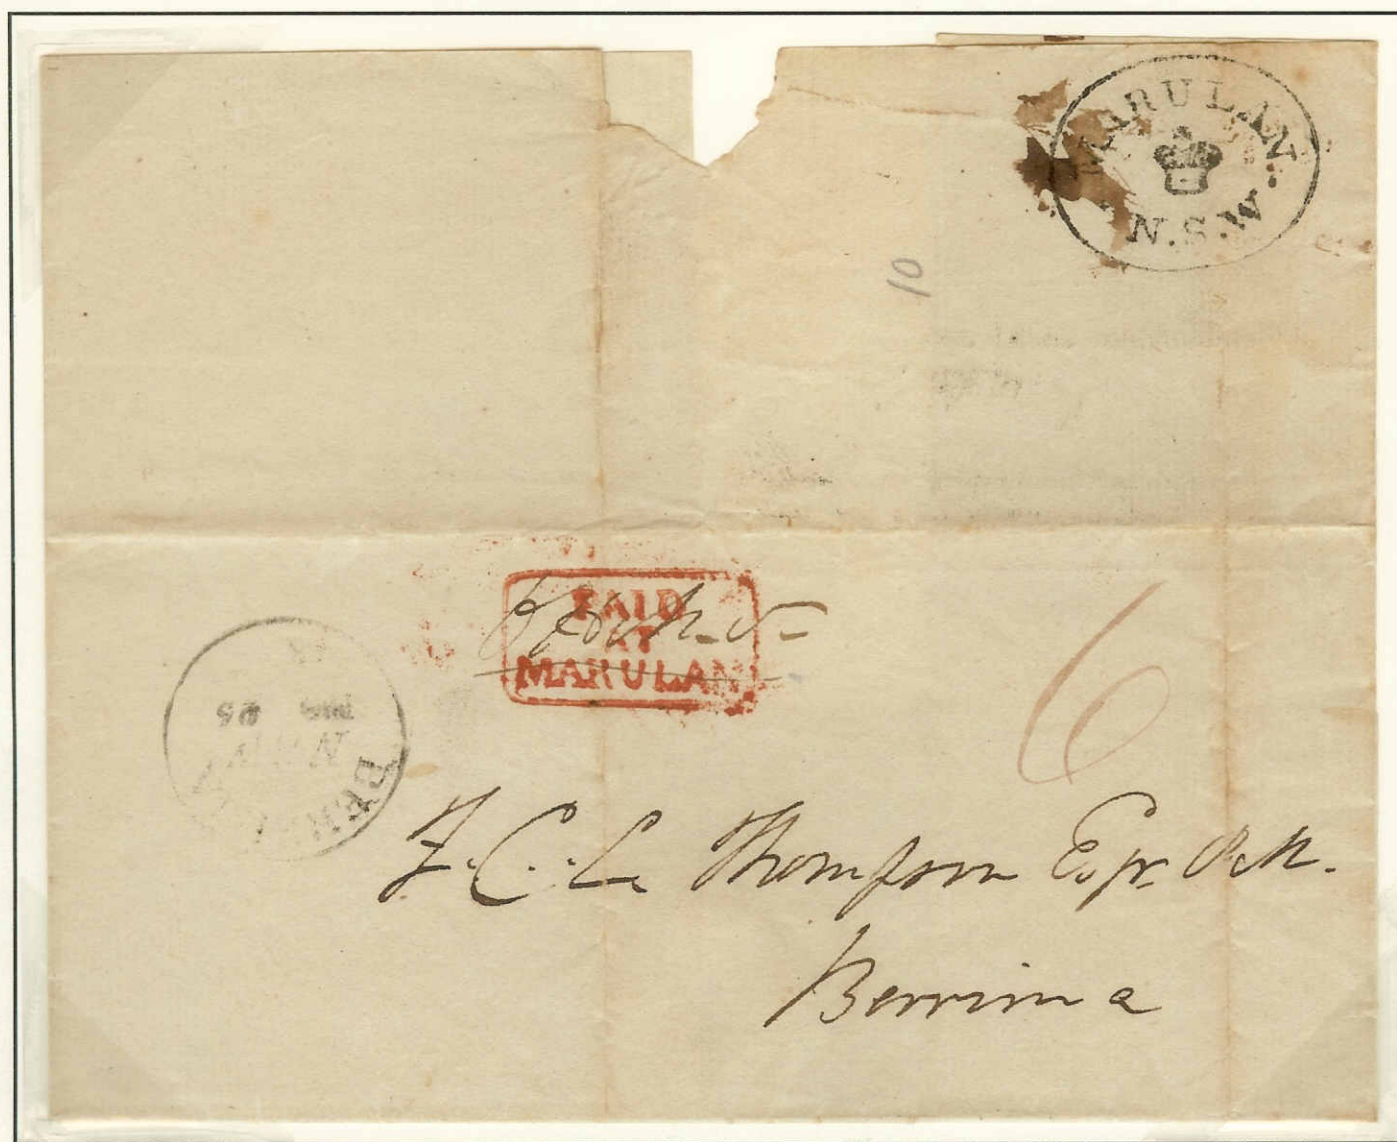 MARULAN
N.S.W
10
PAID
AT
MARULAN
6
25
F. C. L. Thompson Esqr. P.M.
Berrima